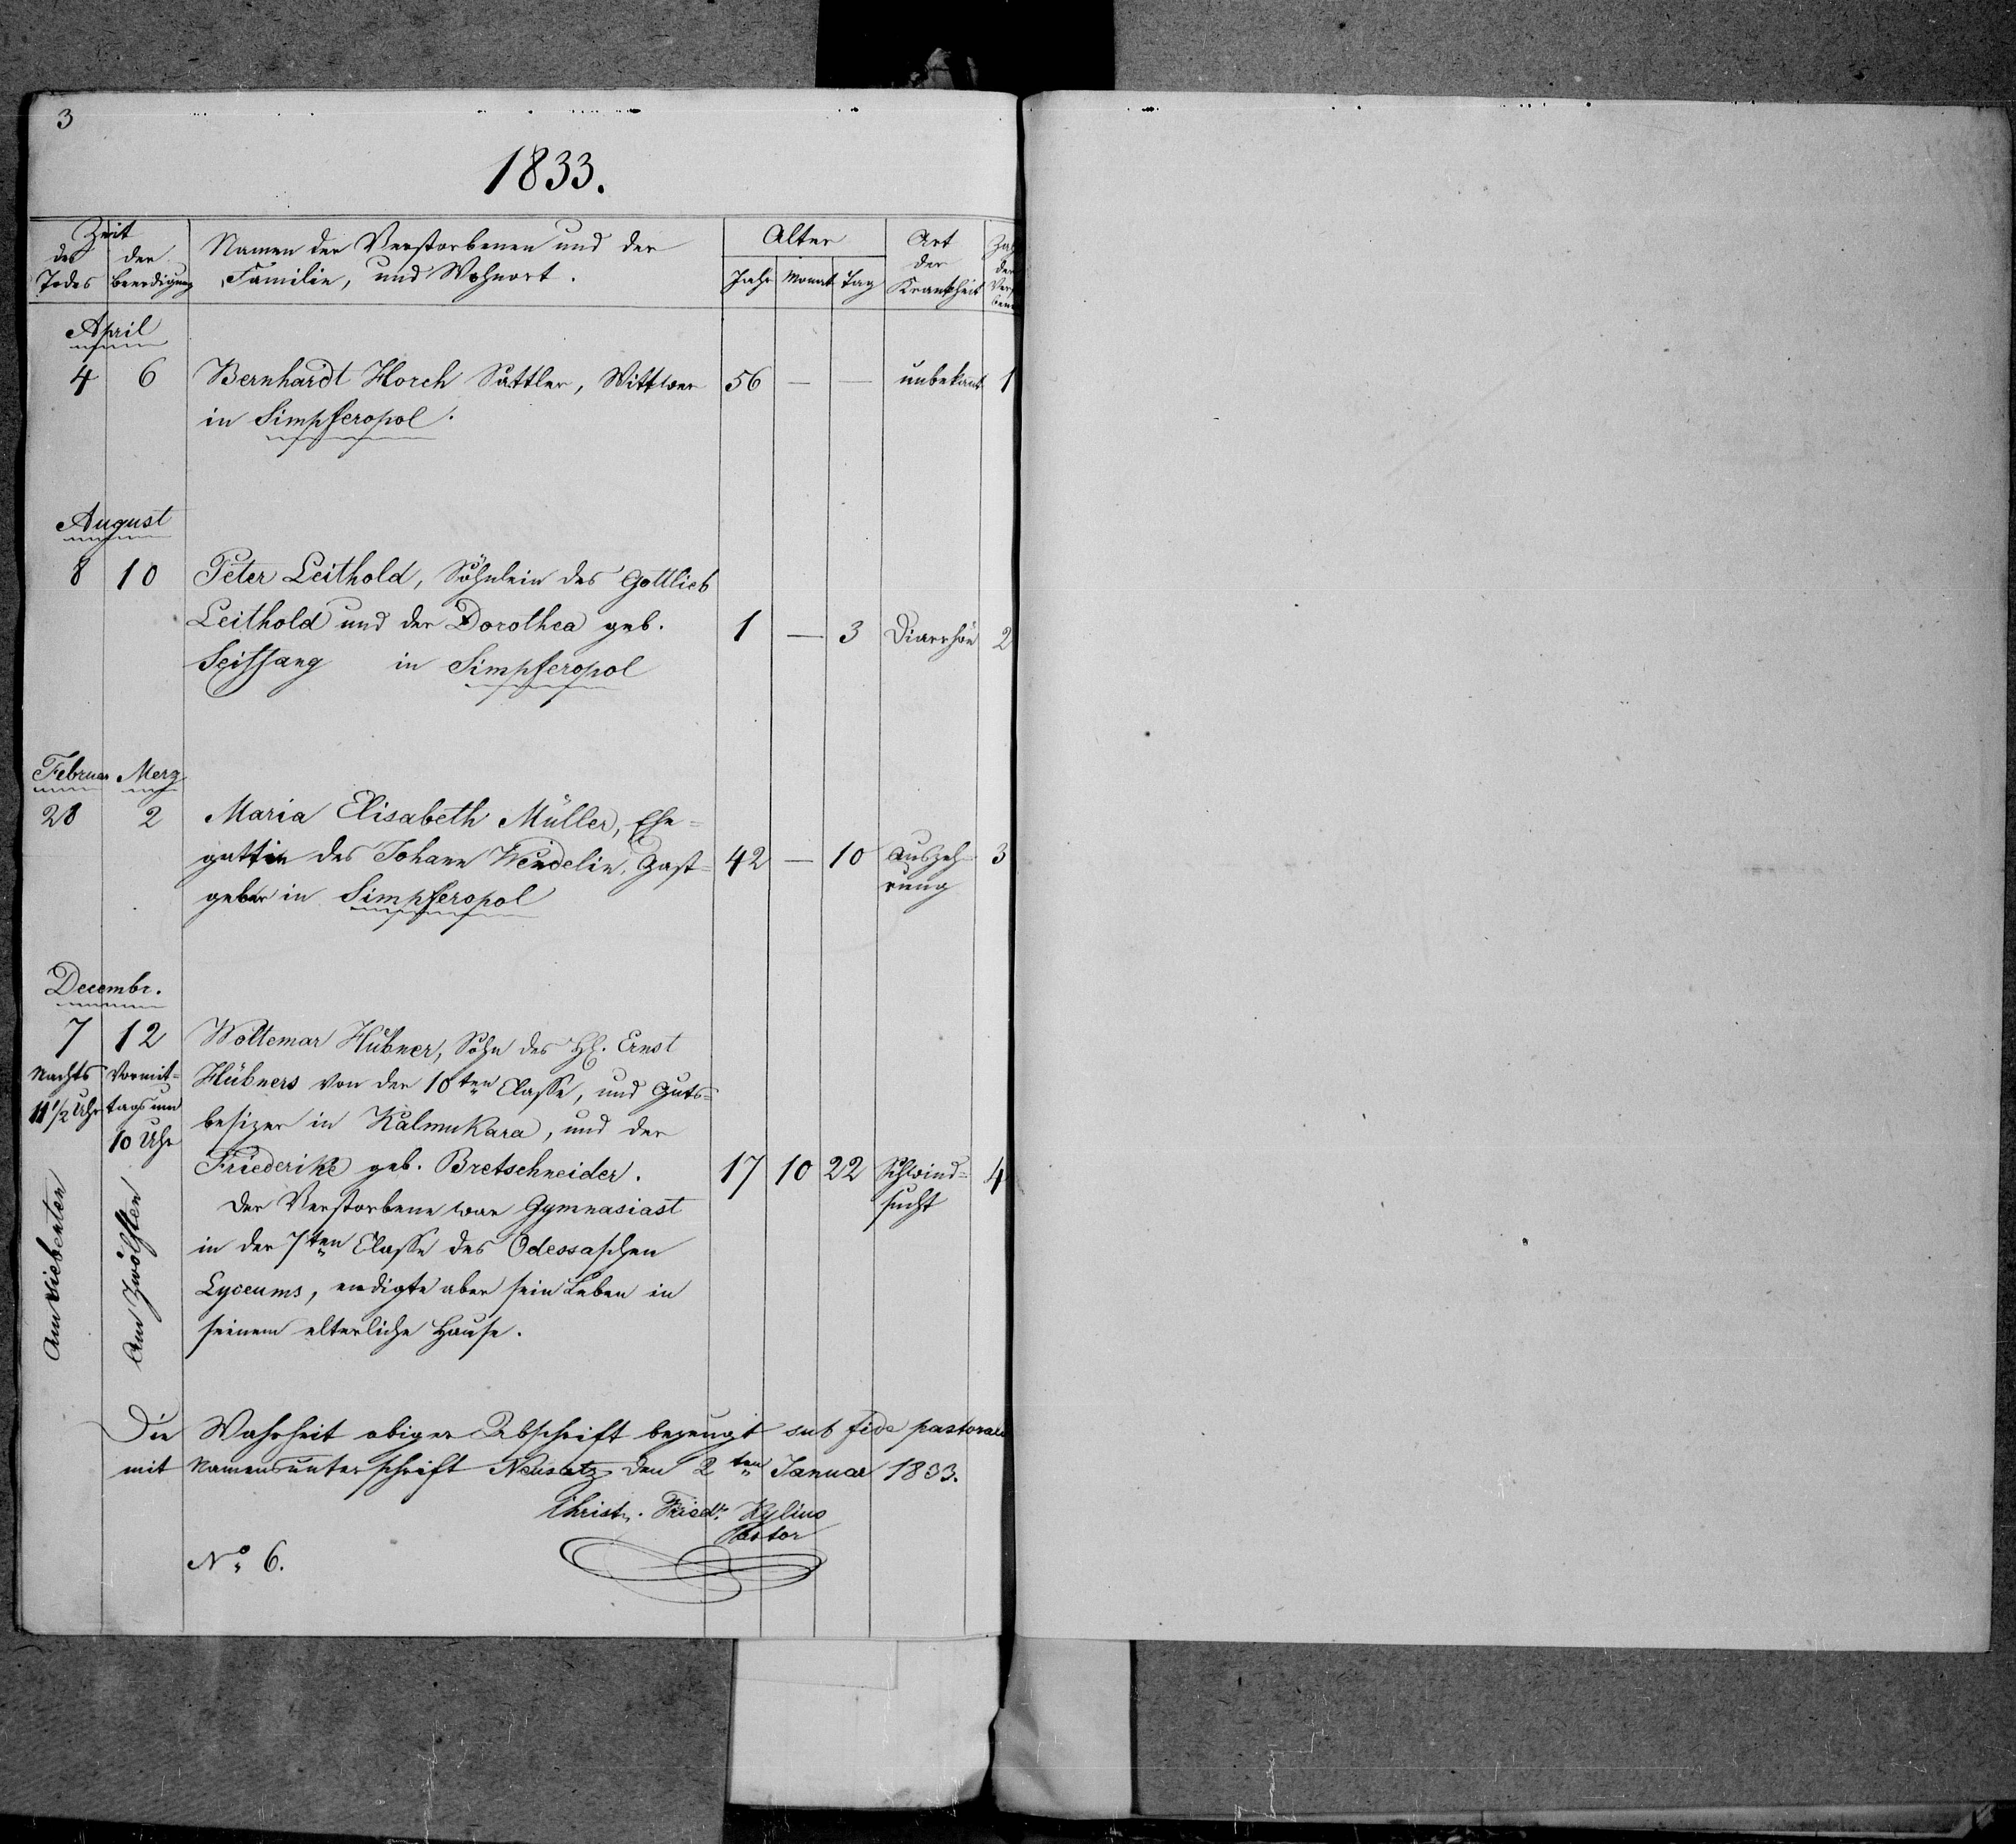 3
1833.
Zeit
des Todes
der Beerdigung
Namen der Verstorbenen und der
Familie, und Wohnort.
Alter
Jahr Monat Tag
Art
der
Krankheit
April
4 6 Bernhardt Horch Sattler, Wittwer 56 — — unbekannt 1
in Simpferopol.
August
8 10 Peter Leithold, Söhnlein des Gottlieb
Leithold und der Dorothea geb. 1 — 3 Diarrhöe 2
Seissang in Simpferopol
Februar Merz
28 2 Maria Elisabeth Müller, Ehe=
gattin des Johann Wendelin, Gast= 42 — 10 Auszeh= 3
geber in Simpferopol rung
Decembr.
7 12 Woltemar Hübner, Sohn des H. Ernst
Nachts Vormit= Hübners von der 10ten Classe, und Guts=
11 1/2 Uhr tags um besizer in Kalmukara, und der
10 Uhr
Friederike geb. Bretschneider. 17 10 22 Schwind= 4
Der Verstorbene war Gymnasiast sucht
in der 7ten Classe des Odessaschen
Lyceums, endigte aber sein Leben in
seinem elterliche Hause.
Am siebenten
Am zwölften
Die Wahrheit obiger Abschrift bezeugt sub fide pastorali
mit Namensunterschrift Neusatz den 2ten Januar 1833.
Christ. Friedr. Kylius
Pastor
No 6.